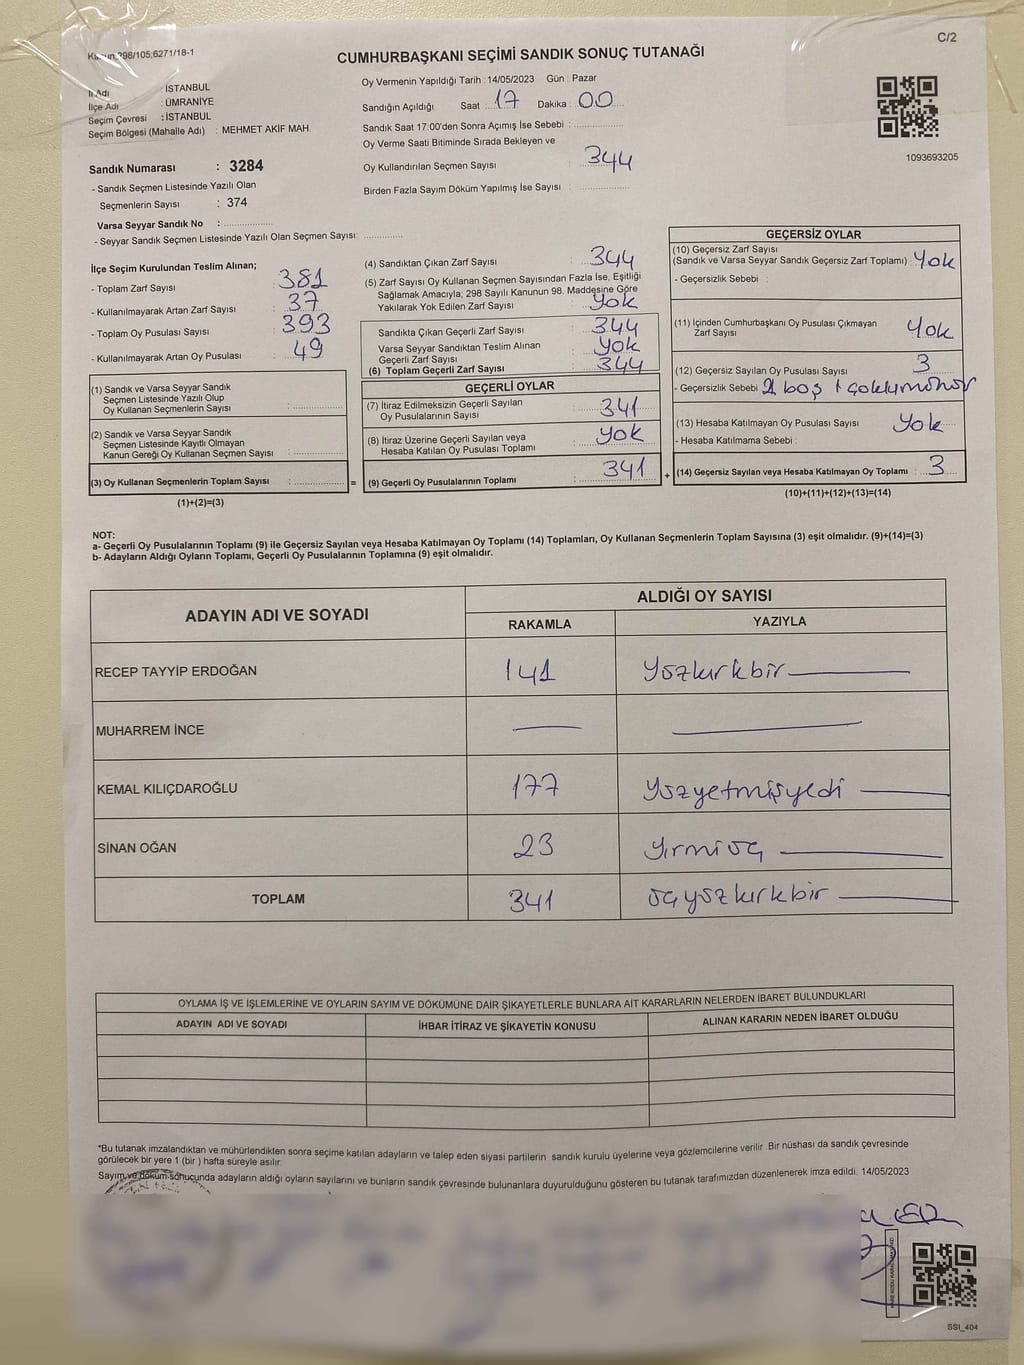 Kanun:298/105;6271/18-1
C/2
CUMHURBAŞKANI SEÇİMİ SANDIK SONUÇ TUTANAĞI
İl Adı : İSTANBUL
İlçe Adı : ÜMRANİYE
Seçim Çevresi : İSTANBUL
Seçim Bölgesi (Mahalle Adı) : MEHMET AKİF MAH.
Sandık Numarası : 3284
- Sandık Seçmen Listesinde Yazılı Olan
Seçmenlerin Sayısı : 374
Varsa Seyyar Sandık No :
- Seyyar Sandık Seçmen Listesinde Yazılı Olan Seçmen Sayısı:
Oy Vermenin Yapıldığı Tarih : 14/05/2023 Gün : Pazar
Sandığın Açıldığı Saat : 17 Dakika : 00
Sandık Saat 17:00'den Sonra Açımış İse Sebebi :
Oy Verme Saati Bitiminde Sırada Bekleyen ve
Oy Kullandırılan Seçmen Sayısı : 344
Birden Fazla Sayım Döküm Yapılmış İse Sayısı :
1093693205
İlçe Seçim Kurulundan Teslim Alınan;
- Toplam Zarf Sayısı : 381
- Kullanılmayarak Artan Zarf Sayısı : 37
- Toplam Oy Pusulası Sayısı : 393
- Kullanılmayarak Artan Oy Pusulası : 49
(1) Sandık ve Varsa Seyyar Sandık
Seçmen Listesinde Yazılı Olup
Oy Kullanan Seçmenlerin Sayısı :
(2) Sandık ve Varsa Seyyar Sandık
Seçmen Listesinde Kayıtlı Olmayan
Kanun Gereği Oy Kullanan Seçmen Sayısı :
(3) Oy Kullanan Seçmenlerin Toplam Sayısı : =
(1)+(2)=(3)
(4) Sandıktan Çıkan Zarf Sayısı : 344
(5) Zarf Sayısı Oy Kullanan Seçmen Sayısından Fazla İse, Eşitliği
Sağlamak Amacıyla; 298 Sayılı Kanunun 98. Maddesine Göre
Yakılarak Yok Edilen Zarf Sayısı : Yok
Sandıkta Çıkan Geçerli Zarf Sayısı : 344
Varsa Seyyar Sandıktan Teslim Alınan
Geçerli Zarf Sayısı : Yok
(6) Toplam Geçerli Zarf Sayısı : 344
GEÇERLİ OYLAR
(7) İtiraz Edilmeksizin Geçerli Sayılan
Oy Pusulalarının Sayısı : 341
(8) İtiraz Üzerine Geçerli Sayılan veya
Hesaba Katılan Oy Pusulası Toplamı : Yok
(9) Geçerli Oy Pusulalarının Toplamı : 341 +
GEÇERSİZ OYLAR
(10) Geçersiz Zarf Sayısı
(Sandık ve Varsa Seyyar Sandık Geçersiz Zarf Toplamı) : Yok
- Geçersizlik Sebebi :
(11) İçinden Cumhurbaşkanı Oy Pusulası Çıkmayan
Zarf Sayısı : Yok
(12) Geçersiz Sayılan Oy Pusulası Sayısı : 3
- Geçersizlik Sebebi : boş + çoklu mühür
(13) Hesaba Katılmayan Oy Pusulası Sayısı : Yok
- Hesaba Katılmama Sebebi :
(14) Geçersiz Sayılan veya Hesaba Katılmayan Oy Toplamı : 3
(10)+(11)+(12)+(13)=(14)
NOT:
a- Geçerli Oy Pusulalarının Toplamı (9) ile Geçersiz Sayılan veya Hesaba Katılmayan Oy Toplamı (14) Toplamları, Oy Kullanan Seçmenlerin Toplam Sayısına (3) eşit olmalıdır. (9)+(14)=(3)
b- Adayların Aldığı Oyların Toplamı, Geçerli Oy Pusulalarının Toplamına (9) eşit olmalıdır.
ADAYIN ADI VE SOYADI ALDIĞI OY SAYISI
RAKAMLA YAZIYLA
RECEP TAYYİP ERDOĞAN 141 Yüzkırkbir
MUHARREM İNCE
KEMAL KILIÇDAROĞLU 177 Yüzyetmişyedi
SİNAN OĞAN 23 Yirmiüç
TOPLAM 341 üçyüzkırkbir
OYLAMA İŞ VE İŞLEMLERİNE VE OYLARIN SAYIM VE DÖKÜMÜNE DAİR ŞİKAYETLERLE BUNLARA AİT KARARLARIN NELERDEN İBARET BULUNDUKLARI
ADAYIN ADI VE SOYADI İHBAR İTİRAZ VE ŞİKAYETİN KONUSU ALINAN KARARIN NEDEN İBARET OLDUĞU
*Bu tutanak imzalandıktan ve mühürlendikten sonra seçime katılan adayların ve talep eden siyasi partilerin sandık kurulu üyelerine veya gözlemcilerine verilir. Bir nüshası da sandık çevresinde
görülecek bir yere 1 (bir ) hafta süreyle asılır.
Sayım ve döküm sonucunda adayların aldığı oyların sayılarını ve bunların sandık çevresinde bulunanlara duyurulduğunu gösteren bu tutanak tarafımızdan düzenlenerek imza edildi. 14/05/2023
SSI_404